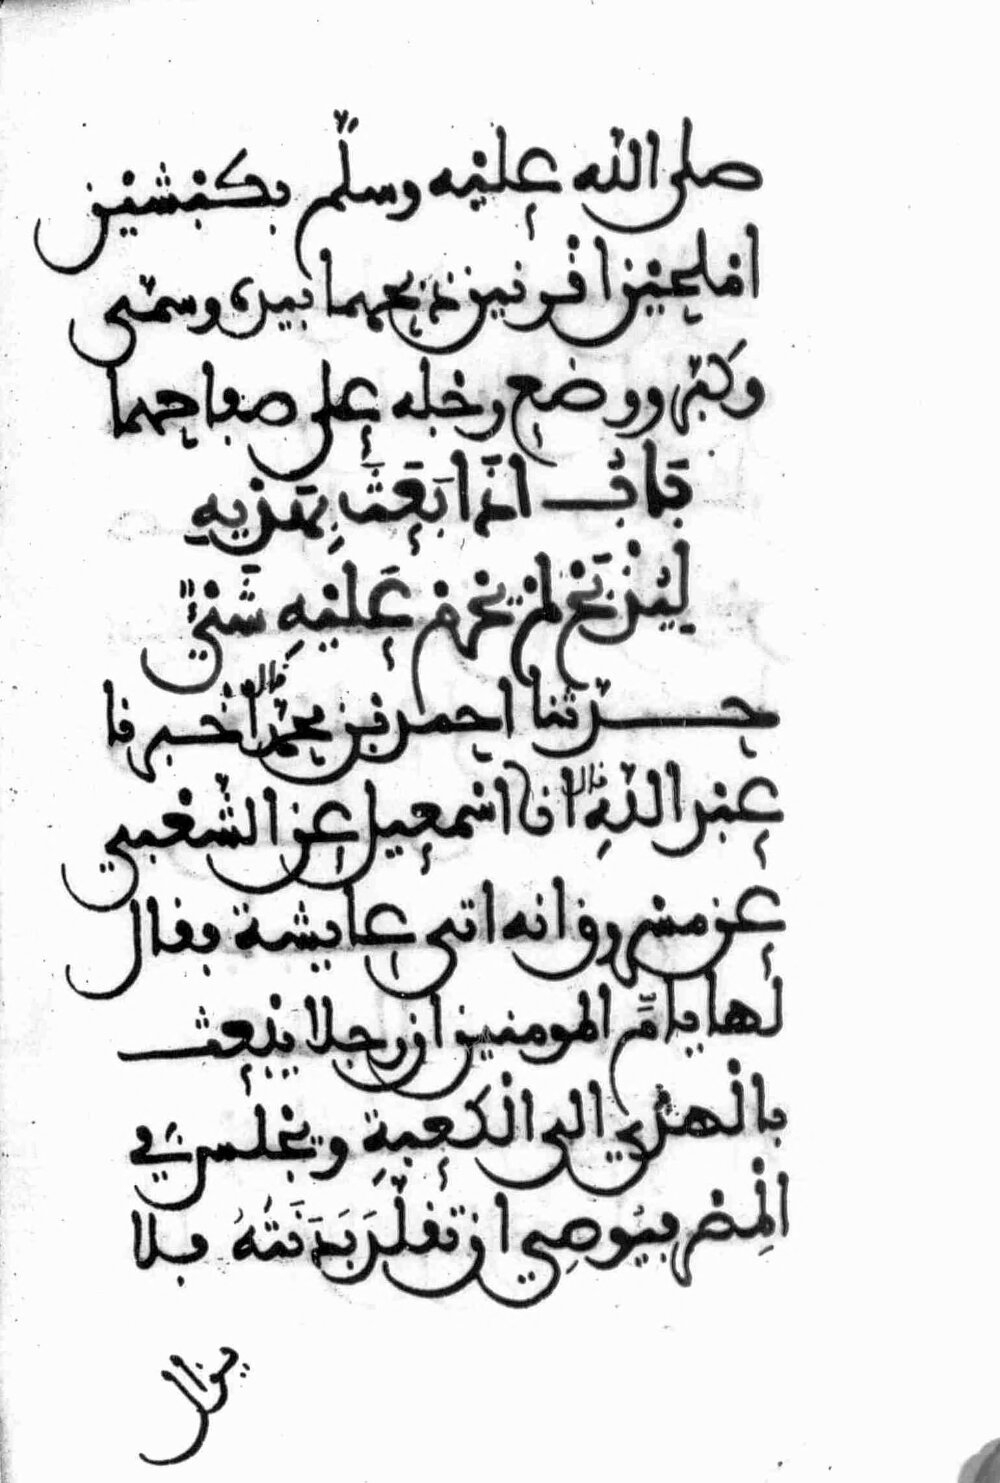 صلى الله عليه وسلم بكبشين
املحين اقرنين ذبحهما بيده وسمى
وكبر ووضع رجله على صفاحهما
باب اذا بعث بهديه
ليذبح لم يحرم عليه شيء
حدثنا احمد بن محمد قال اخبرنا
عبد الله قال انا اسمعيل عن الشعبي
عن مسروق انه اتى عايشة فقال
لها يا ام المومنين ان رجلا يبعث
بالهدي الى الكعبة ويجلس في
المصر فيوصي ان تقلد بدنته فلا
يزال